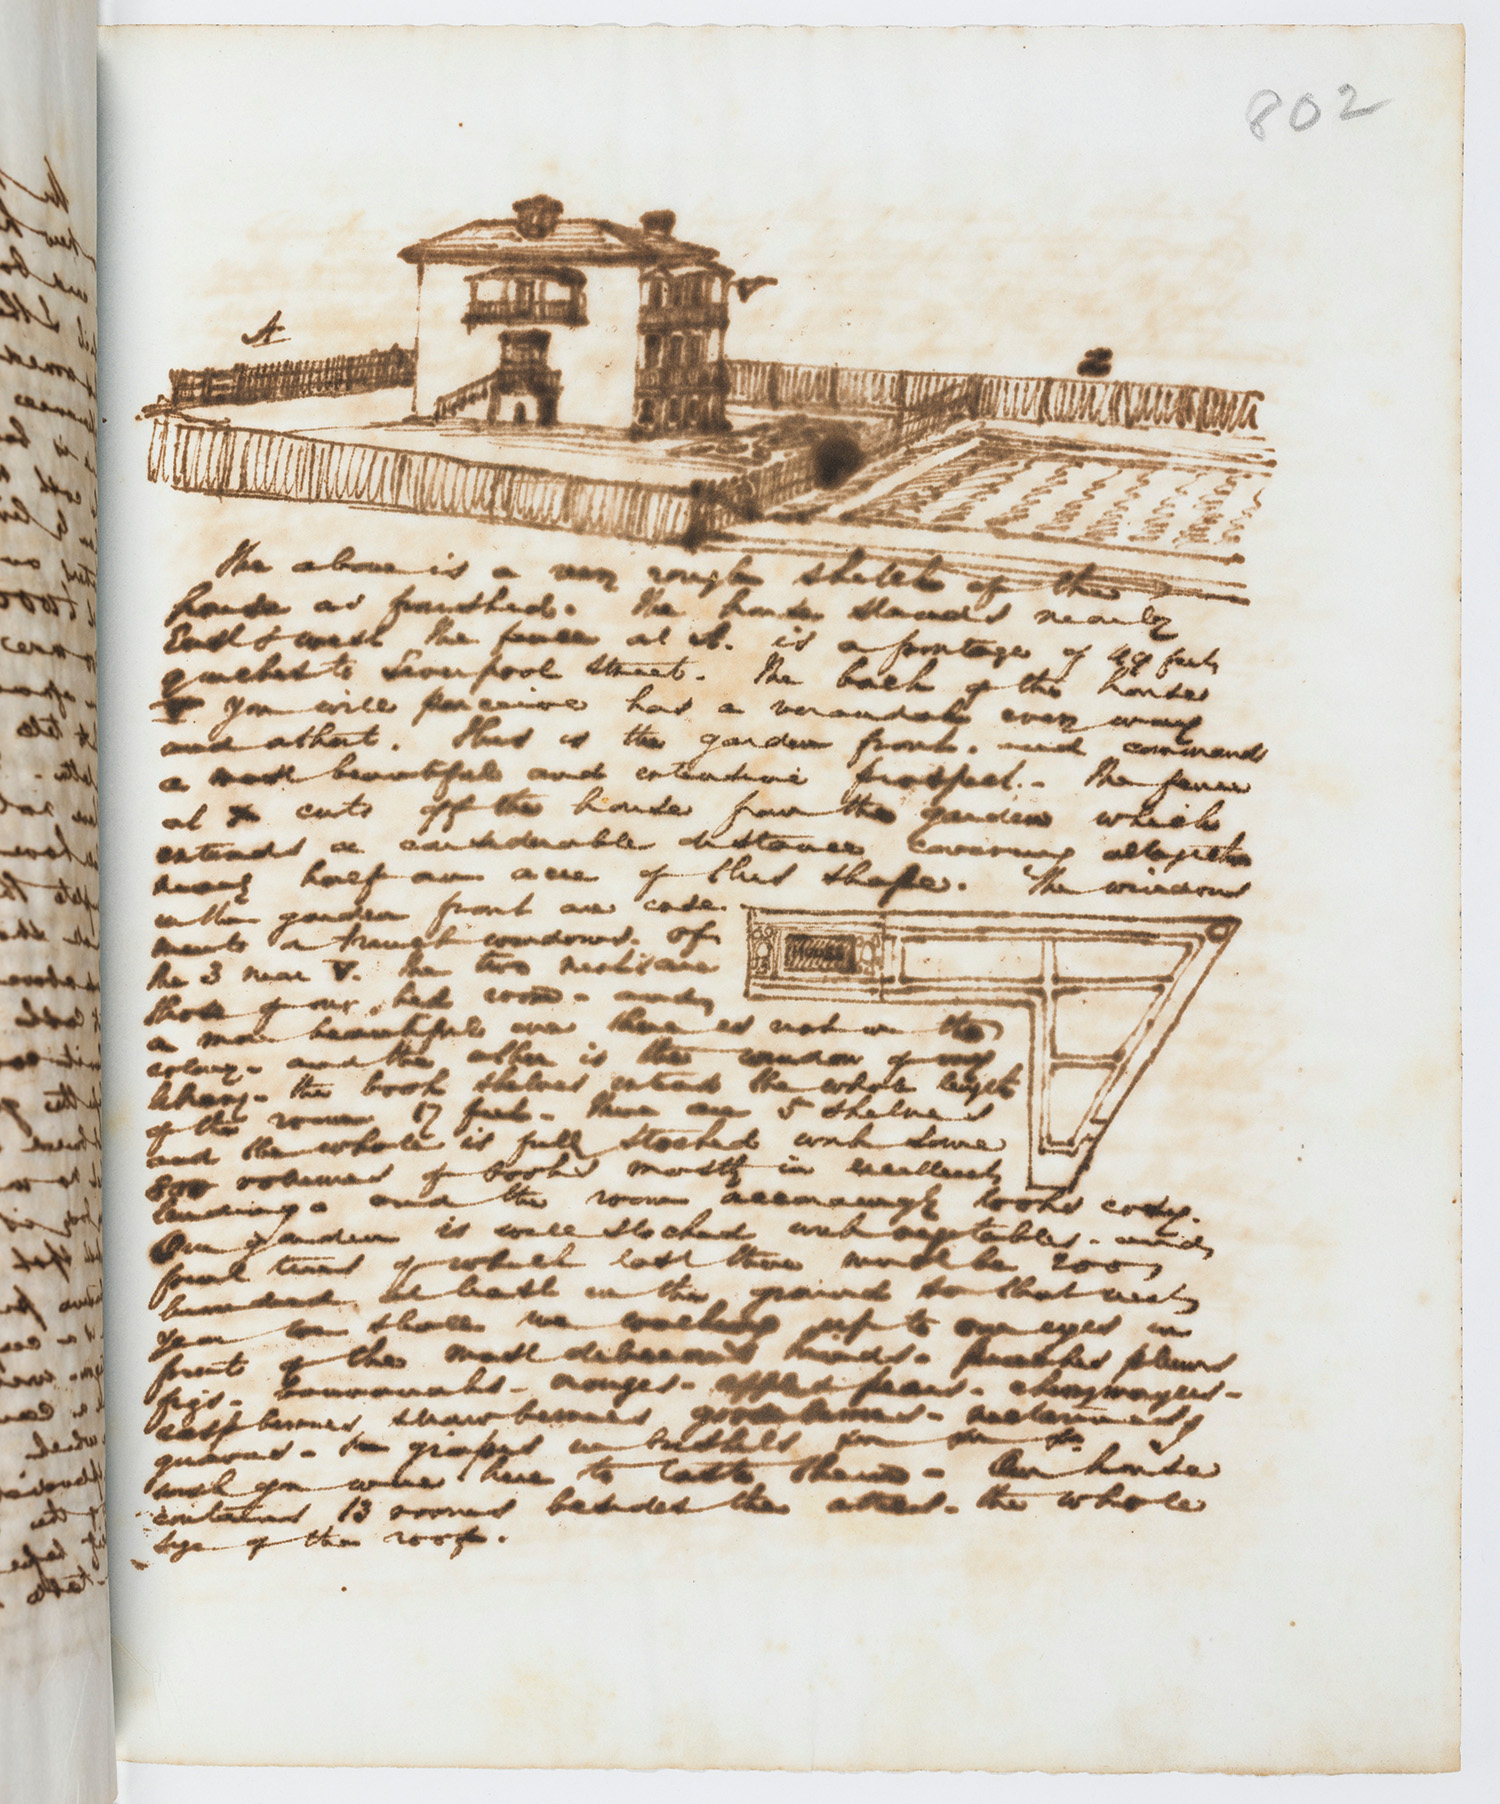 802
A
The above is a very rough sketch of the
house as finished. The house stands nearly
East & west The fence at A. is a frontage of 49 feet
to Liverpool street. The back of the house
you will perceive has a verandah every way
and . This is the garden front. and commands
a most beautiful and extensive prospect. - The fence
at cuts off the house from the garden which
extends a considerable distance covering altogether
nearly half an acre of this shape. The windows
in the garden front are case
ments a french windows. Of
the 3 near V. the two are
those of our bed room - and
a more beautiful one there is not in the
colony - and the other is the window of my
library - the book shelves extend the whole length
of the room 17 feet - There are 5 shelves
and the whole is full stocked with some
800 volumes of books mostly in excellent
bindings and the room looks cosy.
Our garden is well stocked with vegetables - and
fruit trees of which last there must be 200
hundred at least in the ground so that next
year we shall be up to our eyes in
fruit of the most delicious kinds - peaches plums
figs - - oranges - apples pears - -
raspberries strawberries gooseberries -
guavas - grapes in bushels
wish you were here to taste them - Our house
contains 13 rooms besides the attics - the whole
of the roof.